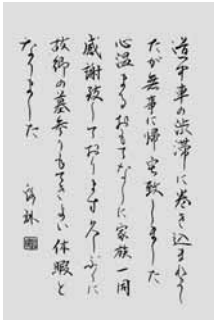 道中車の渋滞に巻き込まれまし
たが無事に帰宅致しました
心温まるおもてなしに家族一同
感謝致しております久しぶりに
故郷の墓参りもでき良い休暇と
なりました